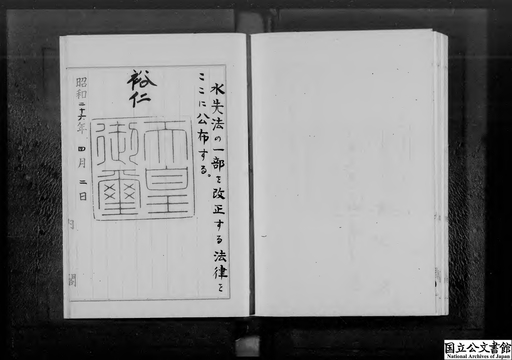 水先法の一部を改正する法律を
ここに公布する。
裕仁
天皇
御璽
昭和二十六年四月二日
内閣
国立公文書館
National Archives of Japan